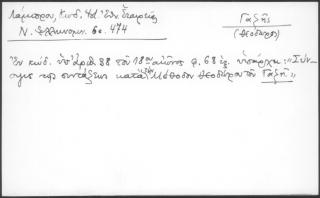 Λάμπρου, Κωδ. Ἱστ. Ἐθν. ἑταιρείας
Ν. Ἑλληνομν. 6ο. 474
Γαζῆς
(Θεόδωρος)
Ἐν κώδ. ὑπ' ἀριθ. 88 τοῦ 18ου αἰῶνος φ. 68 ἑξ. ὑπάρχει: «Σύν-
οψις τῆς συντάξεως κατὰ τὴν μέθοδον Θεοδώρου τοῦ Γαζῆ»